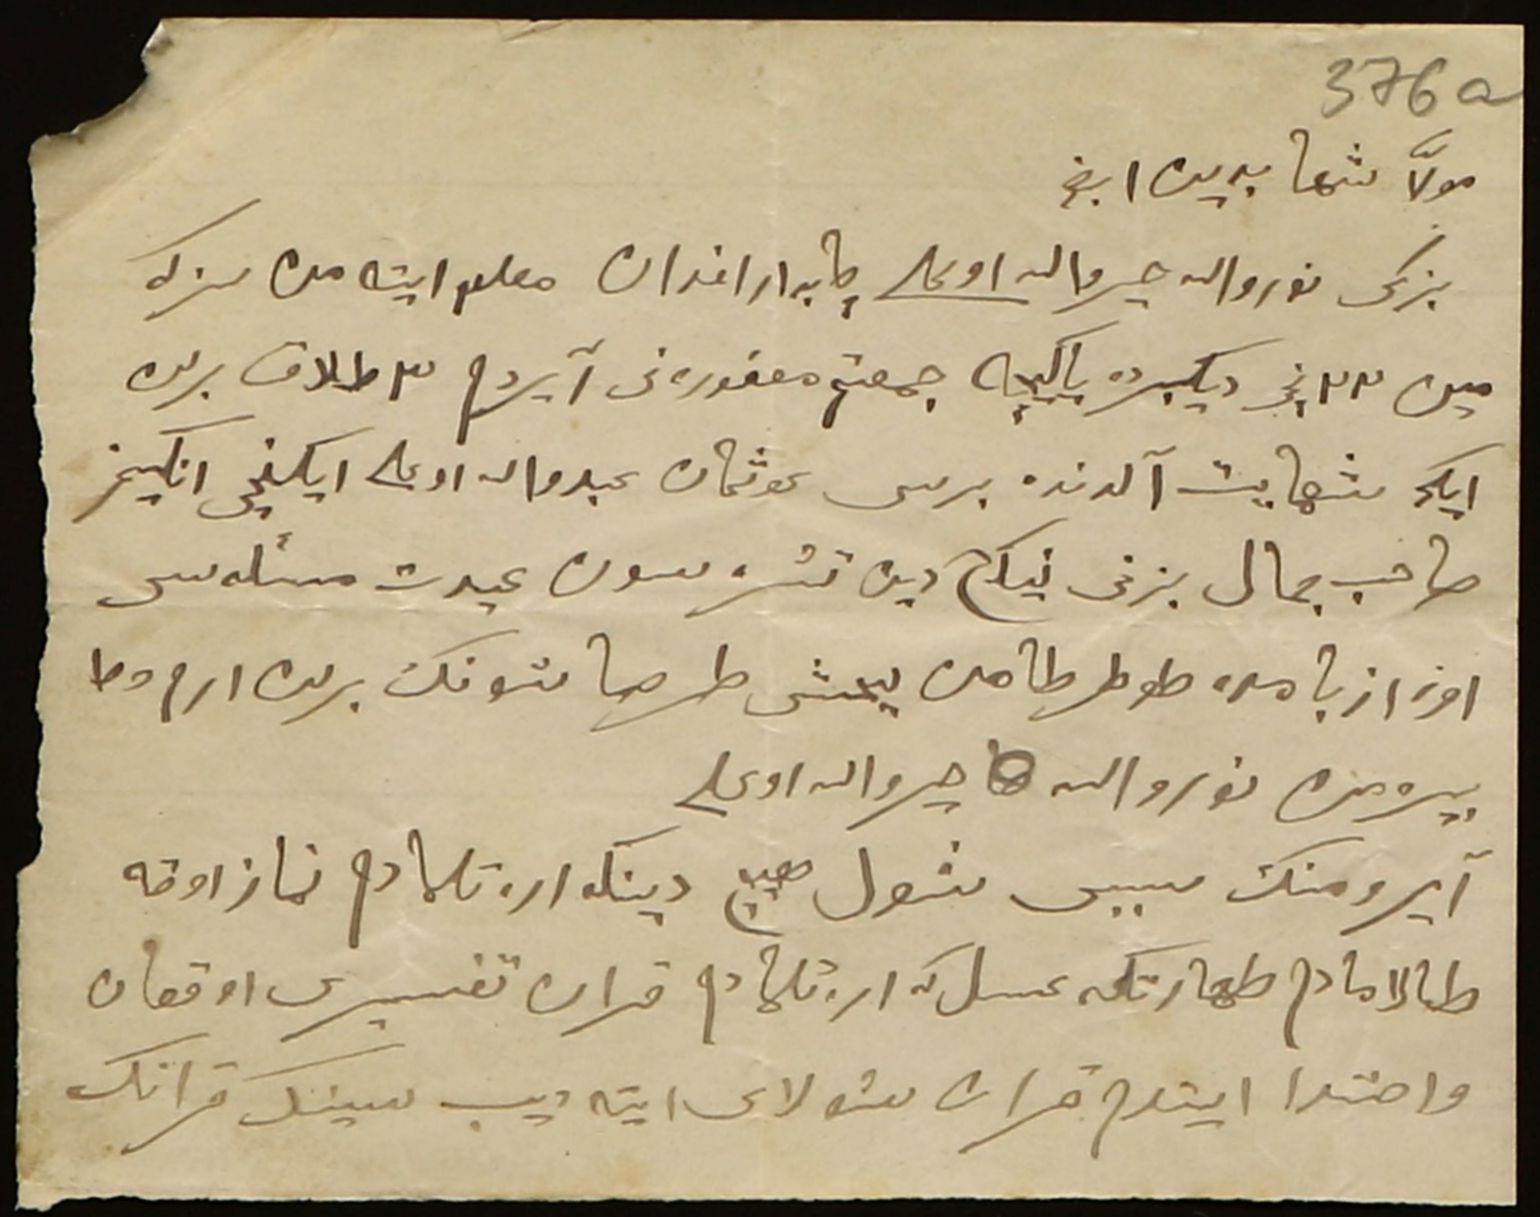 376a
موڵا شهابدین ابزی
بزنکی نورواله خیرواله اوغلی چابدارافندان معلوم ایته من سزکه
مین ٢٣ نچی دیکبرده یاکیچه جمعیتم معفوره نی آیردم ٣ طلاق برلن
ایکی شهایت آلدنده برسی عوثمان عبدواله اوغلی ایکنچی انکیز
صاحب جمال بزنی نیکاح دین تشرسون عیدت مسئله سی
اوزازبامده طوطرطامن یخشی طرصا شونک برلن ارم وطا
بیره من نورواله خیرواله اوغلی
آیرومنک سببی شول هیچ دینکه ارتلمادم نماز اوقه
طالامادم طهارتکه غسل که ارتلمادم قران تفسیری اوقغان
واختدا ایتدم قران شولای ایته دیب سینک قرانک